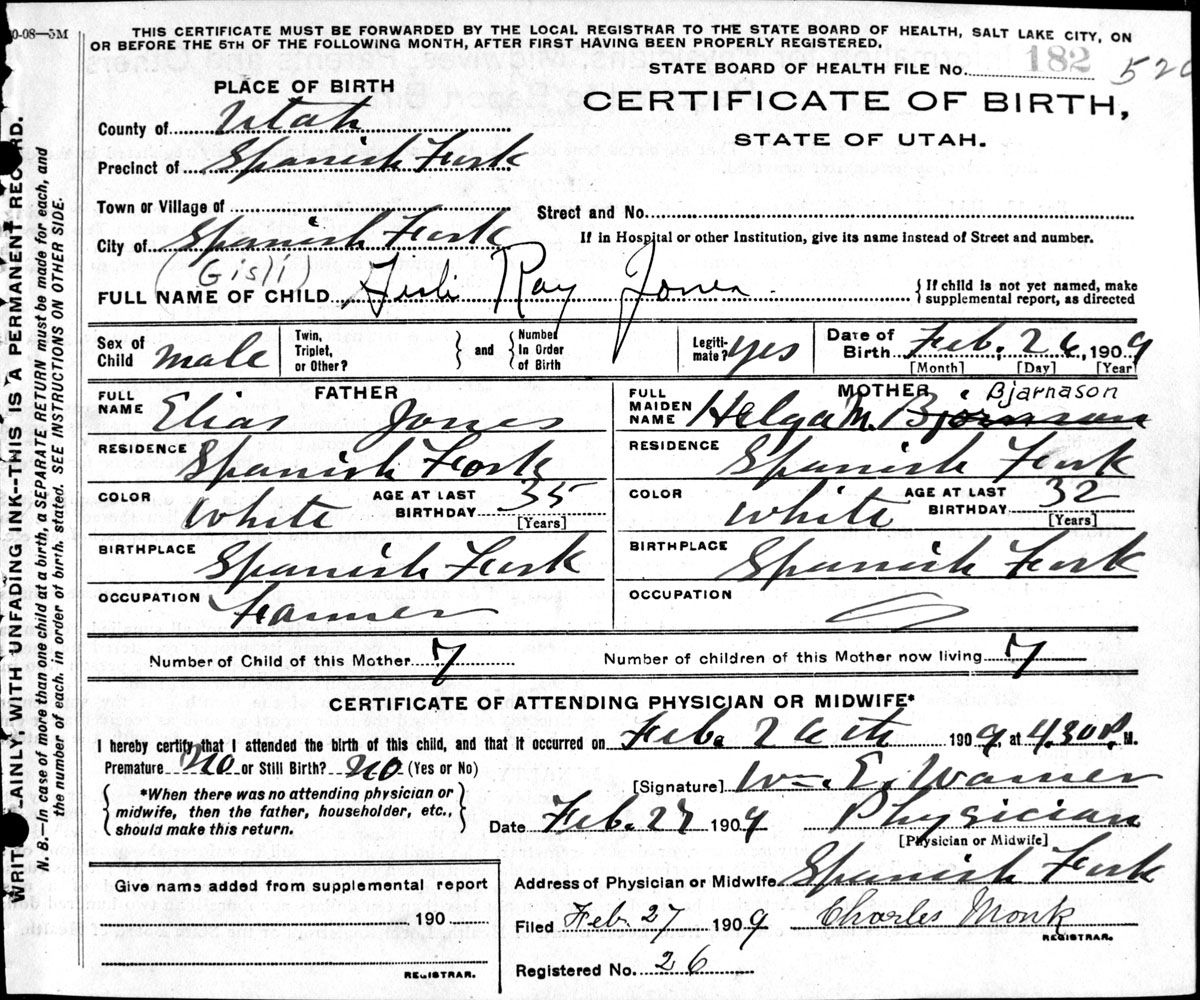 0-08—5M
THIS CERTIFICATE MUST BE FORWARDED BY THE LOCAL REGISTRAR TO THE STATE BOARD OF HEALTH, SALT LAKE CITY, ON
OR BEFORE THE 5TH OF THE FOLLOWING MONTH, AFTER FIRST HAVING BEEN PROPERLY REGISTERED.
STATE BOARD OF HEALTH FILE No. 182 520
PLACE OF BIRTH
CERTIFICATE OF BIRTH,
STATE OF UTAH.
County of Utah
Precinct of Spanish Fork
Town or Village of
Street and No.
City of Spanish Fork
If in Hospital or other Institution, give its name instead of Street and number.
(Gisli)
FULL NAME OF CHILD Gisli Ray Jones
{If child is not yet named, make
supplemental report, as directed
Sex of Child male
Twin, Triplet, or Other? } and { Number In Order of Birth
Legiti-mate? yes
Date of Birth Feb. 26, 1909
[Month] [Day] [Year]
FATHER
FULL NAME Elias Jones
RESIDENCE Spanish Fork
COLOR White AGE AT LAST BIRTHDAY 35
[Years]
BIRTHPLACE Spanish Fork
OCCUPATION Farmer
MOTHER
Bjarnason
FULL MAIDEN NAME Helga M. Bjornson
RESIDENCE Spanish Fork
COLOR White AGE AT LAST BIRTHDAY 32
[Years]
BIRTHPLACE Spanish Fork
OCCUPATION
Number of Child of this Mother 7 Number of children of this Mother now living 7
CERTIFICATE OF ATTENDING PHYSICIAN OR MIDWIFE*
I hereby certify that I attended the birth of this child, and that it occurred on Feb. 26th 1909, at 4.30 P. M.
Premature No or Still Birth? No (Yes or No)
[Signature] Wm. E. Warner
{ *When there was no attending physician or
midwife, then the father, householder, etc.,
should make this return. }
Date Feb. 27 1909 Physician
[Physician or Midwife]
Give name added from supplemental report
190
REGISTRAR.
Address of Physician or Midwife Spanish Fork
Filed Feb. 27 1909 Charles Monk
REGISTRAR.
Registered No. 26
WRITE PLAINLY, WITH UNFADING INK--THIS IS A PERMANENT RECORD.
N. B.—In case of more than one child at a birth, a SEPARATE RETURN must be made for each, and
the number of each. in order of birth. stated. SEE INSTRUCTIONS ON OTHER SIDE.